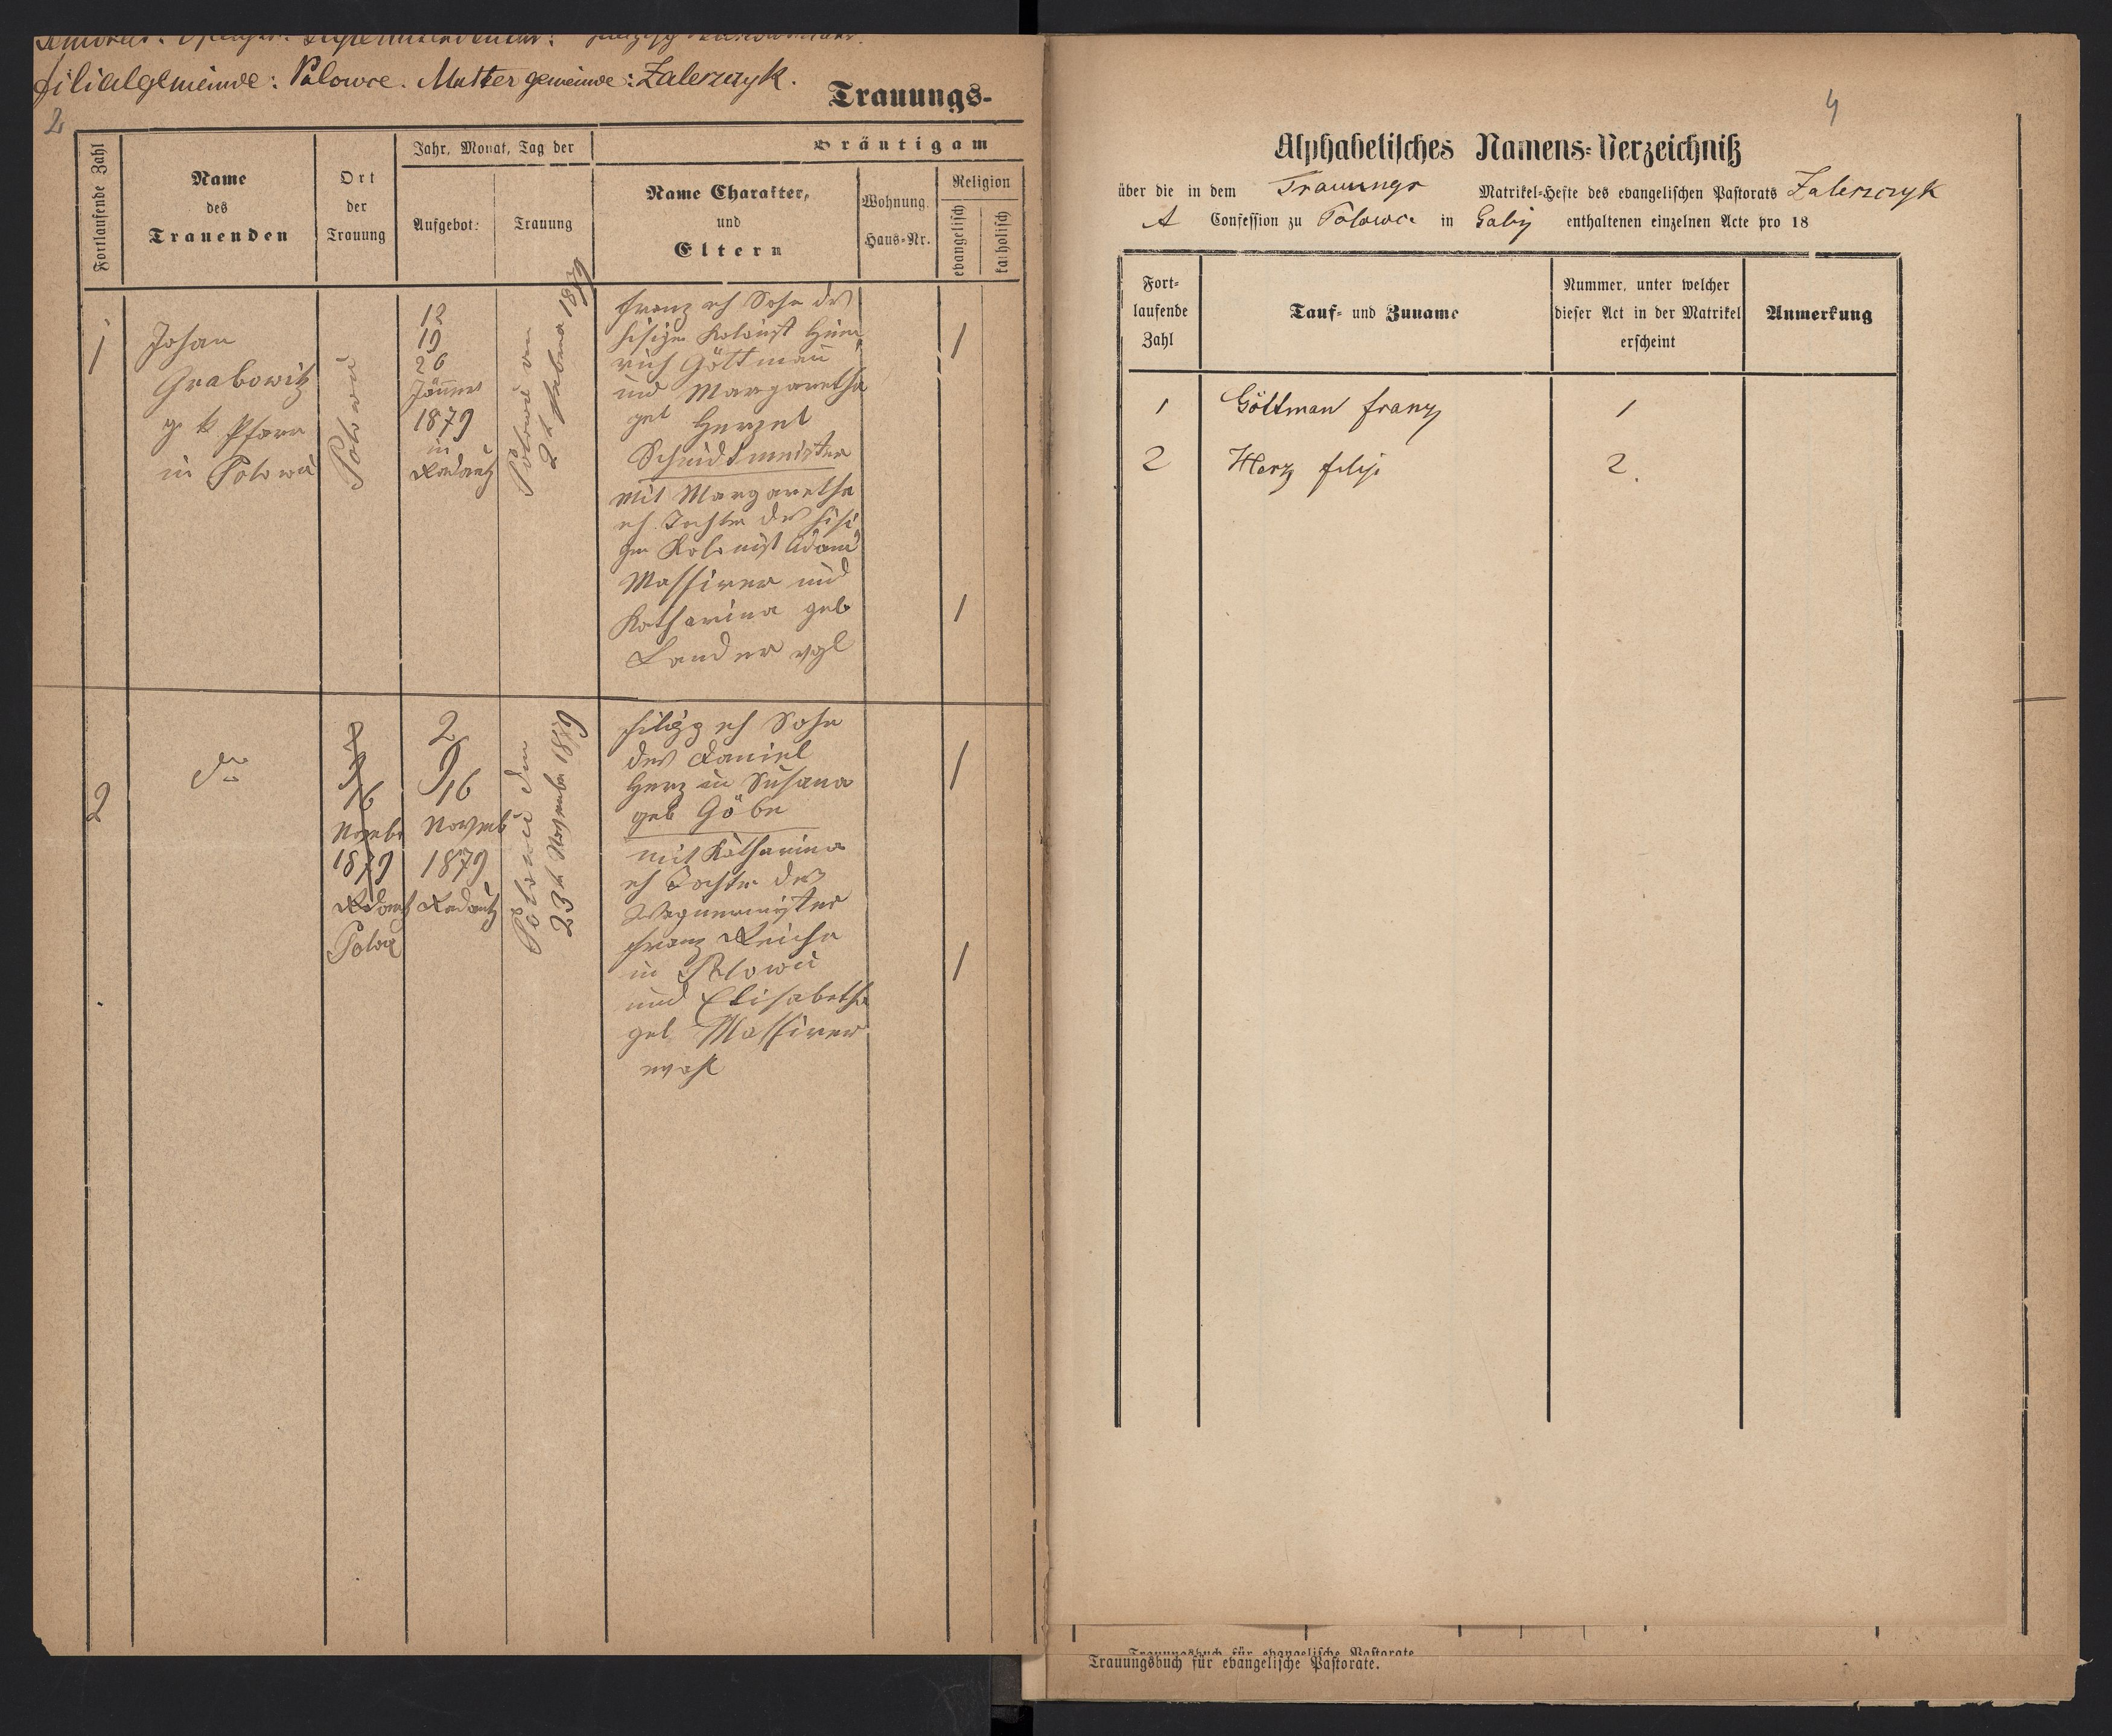 Filialgemeinde: Polowce. Muttergemeinde: Zalerzczyk.
2
Trauungs-
Fortlaufende Zahl
Name
des
Trauenden
Ort
der
Trauung
Jahr, Monat, Tag der
Aufgebot:
Trauung
Bräutigam
Name Charakter,
und
Eltern
Wohnung.
Haus=Nr.
Religion
evangelisch
katholisch
1
Johan
Grabowitz
g. k. Pfarr
in Polowci
Polowci
12
19
26
Jänner
1879
in
Radautz
Franz eh Sohn des
hisigen Kolonist Hein
rich Göttman
und Margaretha
geb Herzel
Schmidtmeister
mit Margaretha
eh. Tochter des hisi
gen Kolonist Adam
Massirer und
Katharina geb
Lander vgl
1
1
2
do
2
9
16
Novemb
1879
Radautz
9
16
Novembr
1879
Radautz
Polowci den
23t November 1879
Filipp eh Sohn
des Daniel
Herz in Susana
geb Göbe
mit Katharina
eh Tochter des
Wagnermeister
Franz Reiche
in Polowci
und Elisabetha
geb Massirer
1
1
4
Alphabetisches Namens=Verzeichniß
über die in dem Trauungs Matrikel=Hefte des evangelischen Pastorats Zalerzczyk
A Confession zu Polowce in Galiz enthaltenen einzelnen Acte pro 18
Fort=
laufende
Zahl
Tauf= und Zuname
Nummer, unter welcher
dieser Act in der Matrikel
erscheint
Anmerkung
1 Göttman Franz 1
2 Herz Filip 2.
Trauungsbuch für evangelische Pastorate
Trauungsbuch für evangelische Pastorate.